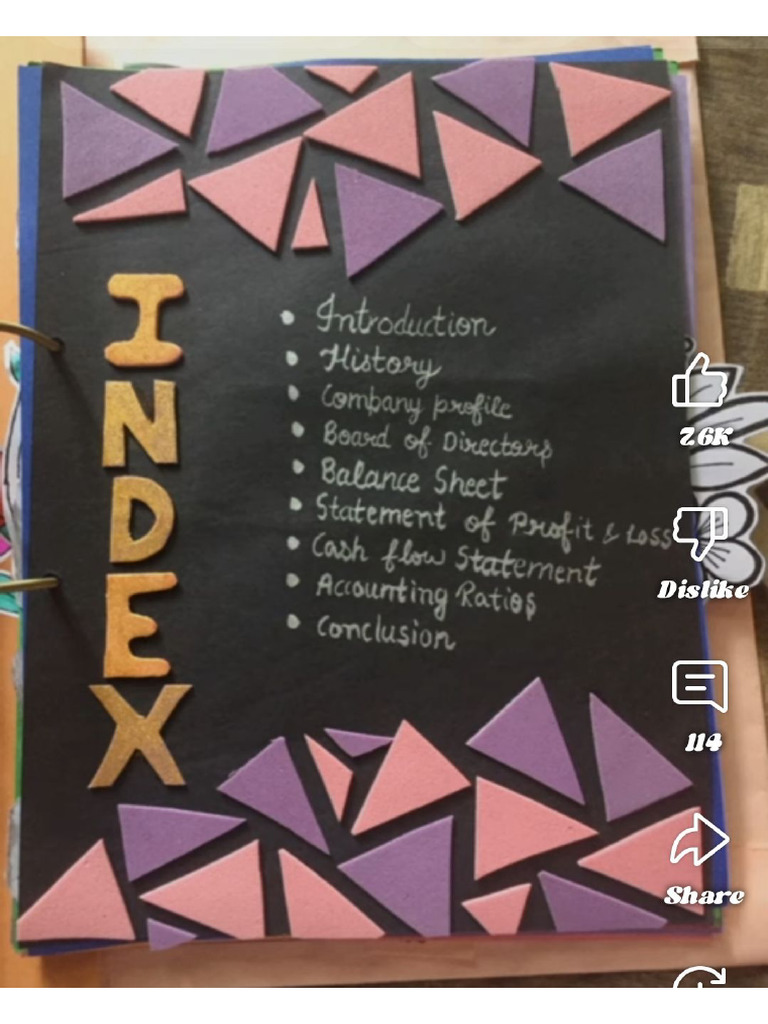 INDEX
• Introduction
• History
• Company profile
• Board of Directors
• Balance Sheet
• Statement of Profit & Loss
• Cash flow Statement
• Accounting Ratios
• Conclusion
7.6K
Dislike
114
Share